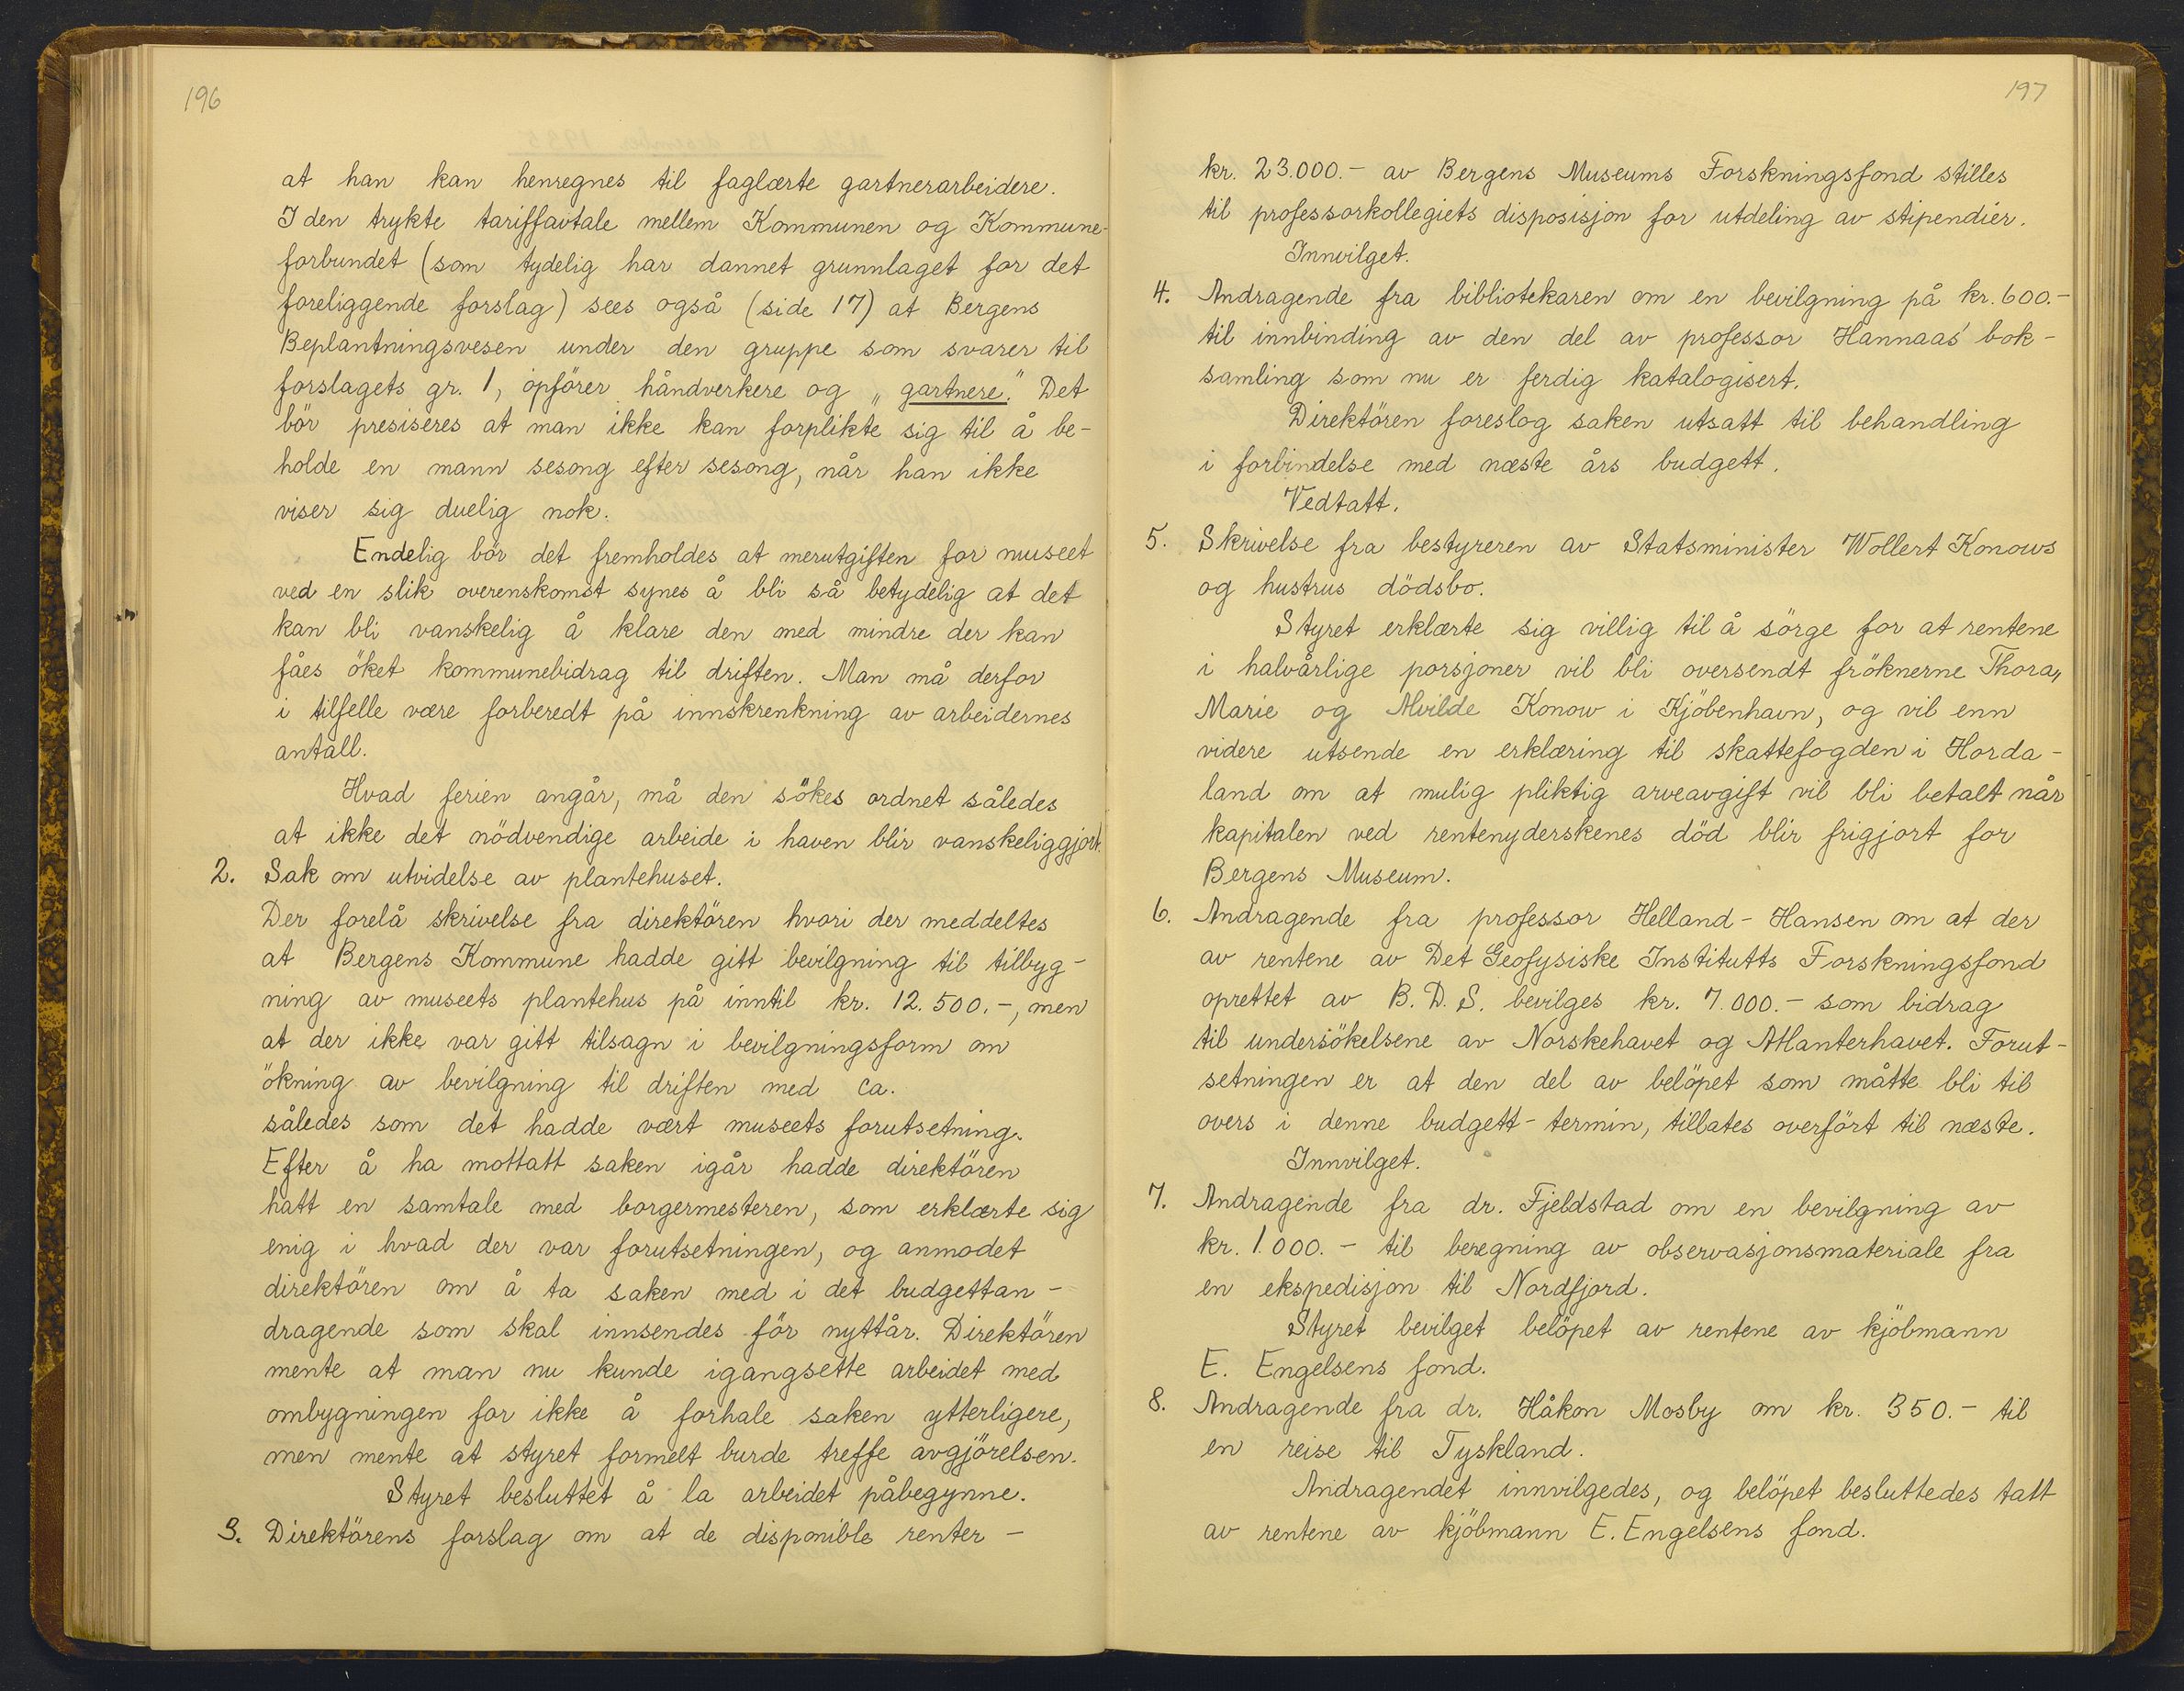 196
at han kan henregnes til faglærte gartnerarbeidere.
I den trykte tariffavtale mellem Kommunen og Kommune-
forbundet (som tydelig har dannet grunnlaget for det
foreliggende forslag) sees også (side 17) at Bergens
Beplantningsvesen under den gruppe som svarer til
forslagets gr. 1, opförer håndverkere og „gartnere." Det
bör presiseres at man ikke kan forplikte sig til å be-
holde en mann sesong efter sesong, når han ikke
viser sig duelig nok.
Endelig bör det fremholdes at merutgiften for museet
ved en slik overenskomst synes å bli så betydelig at det
kan bli vanskelig å klare den med mindre der kan
fåes öket kommunebidrag til driften. Man må derfor
i tilfelle være forberedt på innskrenkning av arbeidernes
antall.
Hvad ferien angår, må den sökes ordnet således
at ikke det nödvendige arbeide i haven blir vanskeliggjort.
2. Sak om utvidelse av plantehuset.
Der forelå skrivelse fra direktören hvori der meddeltes
at Bergens Kommune hadde gitt bevilgning til tilbyg-
ning av museets plantehus på inntil kr. 12.500.-, men
at der ikke var gitt tilsagn i bevilgningsform om
ökning av bevilgning til driften med ca.
således som det hadde vært museets forutsetning.
Efter å ha mottatt saken igår hadde direktören
hatt en samtale med borgermesteren, som erklærte sig
enig i hvad der var forutsetningen, og anmodet
direktören om å ta saken med i det budgettan-
dragende som skal innsendes för nyttår. Direktören
mente at man nu kunde igangsette arbeidet med
ombygningen for ikke å forhale saken ytterligere,
men mente at styret formelt burde treffe avgjörelsen.
Styret besluttet å la arbeidet påbegynne.
3. Direktörens forslag om at de disponible renter -
197
kr. 23.000.- av Bergens Museums Forskningsfond stilles
til professorkollegiets disposisjon for utdeling av stipendier.
Innvilget.
4. Andragende fra bibliotekaren om en bevilgning på kr. 600.-
til innbinding av den del av professor Hannaas' bok-
samling som nu er ferdig katalogisert.
Direktören foreslog saken utsatt til behandling
i forbindelse med næste års budgett.
Vedtatt.
5. Skrivelse fra bestyreren av Statsminister Wollert Konows
og hustrus dödsbo.
Styret erklærte sig villig til å sörge for at rentene
i halvårlige porsjoner vil bli oversendt fröknerne Thora,
Marie og Alvilde Konow i Kjöbenhavn, og vil enn
videre utsende en erklæring til skattefogden i Horda-
land om at mulig pliktig arveavgift vil bli betalt når
kapitalen ved rentenyderskenes död blir frigjort for
Bergens Museum.
6. Andragende fra professor Helland-Hansen om at der
av rentene av Det Geofysiske Institutts Forskningsfond
oprettet av B. D. S. bevilges kr. 7.000.- som bidrag
til undersökelsene av Norskehavet og Atlanterhavet. Forut-
setningen er at den del av belöpet som måtte bli til
overs i denne budgett-termin, tillates overfört til næste.
Innvilget.
7. Andragende fra dr. Fjeldstad om en bevilgning av
kr. 1.000.- til beregning av observasjonsmateriale fra
en ekspedisjon til Nordfjord.
Styret bevilget belöpet av rentene av kjöbmann
E. Engelsens fond.
8. Andragende fra dr. Håkon Mosby om kr. 350.- til
en reise til Tyskland.
Andragendet innvilgedes, og belöpet besluttedes tatt
av rentene av kjöbmann E. Engelsens fond.